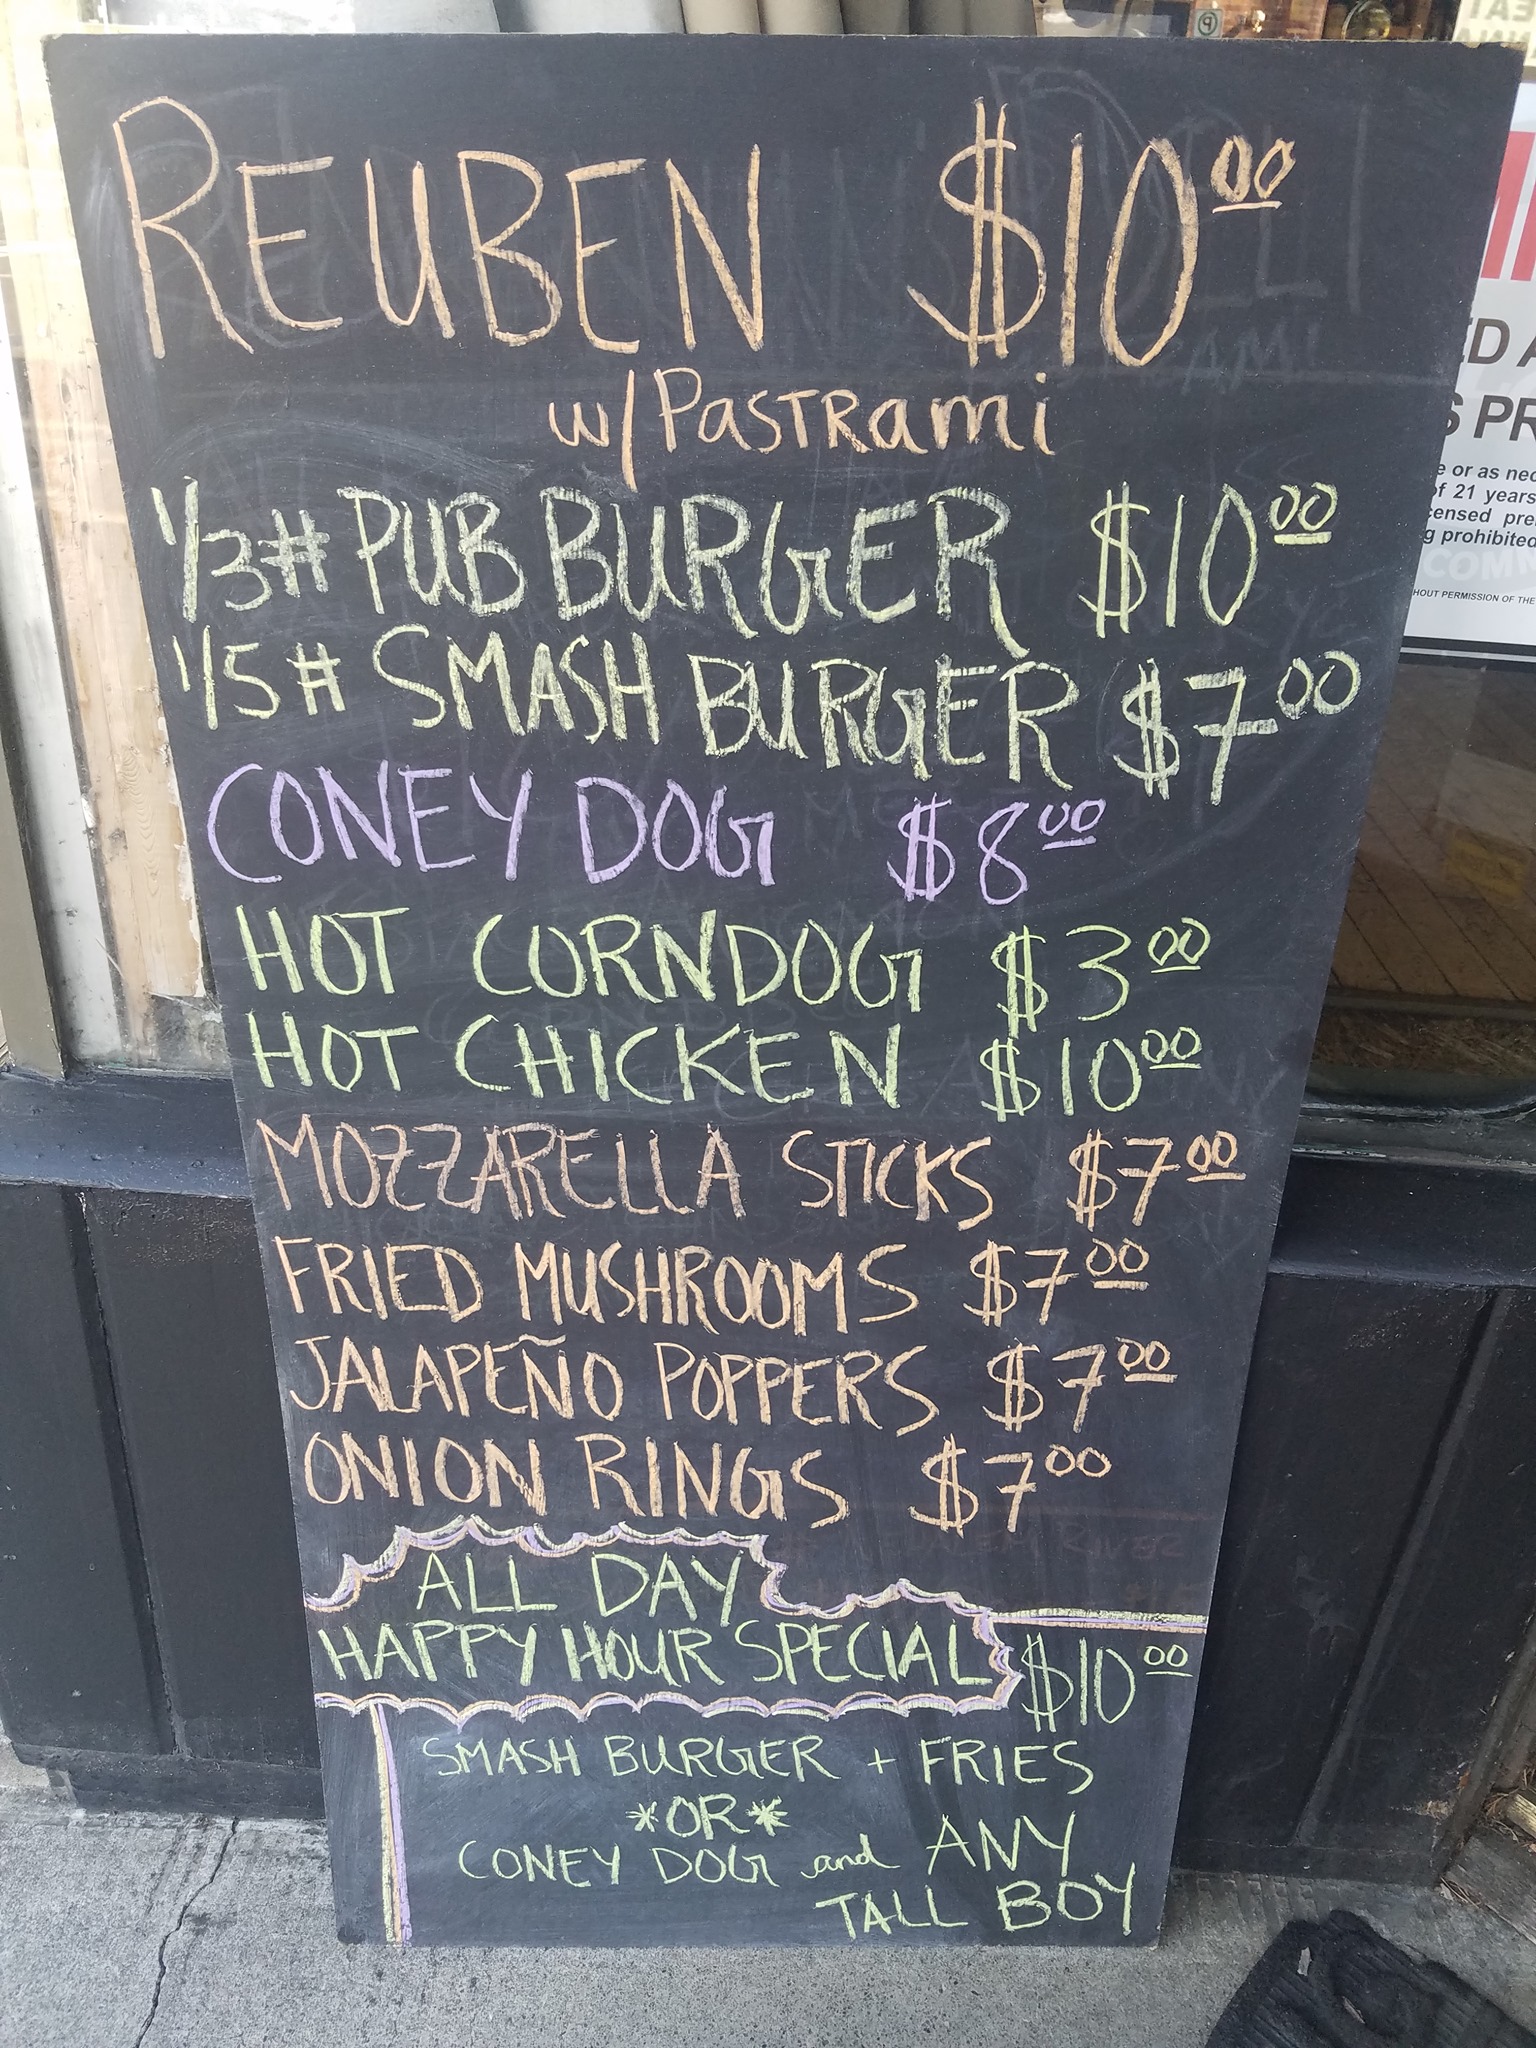 REUBEN $10.00
w/ Pastrami
1/3# PUB BURGER $10.00
1/5# SMASH BURGER $7.00
CONEY DOG $8.00
HOT CORNDOG $3.00
HOT CHICKEN $10.00
MOZZARELLA STICKS $7.00
FRIED MUSHROOMS $7.00
JALAPEÑO POPPERS $7.00
ONION RINGS $7.00
ALL DAY
HAPPY HOUR SPECIAL $10.00
SMASH BURGER + FRIES
*OR*
CONEY DOG and ANY
TALL BOY
e or as nec
of 21 years
censed pre
g prohibited
HOUT PERMISSION OF THE